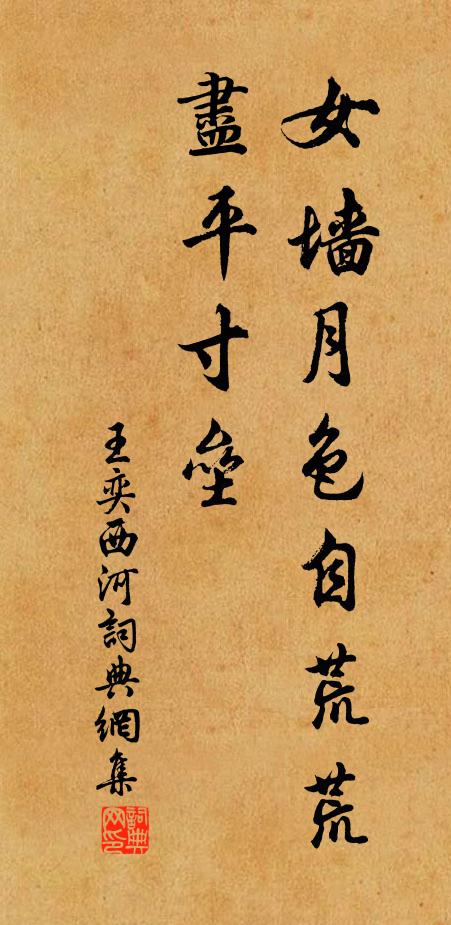 女墙月色自荒荒
盡平寸壘
王奕西河詞典網集
詞典网印